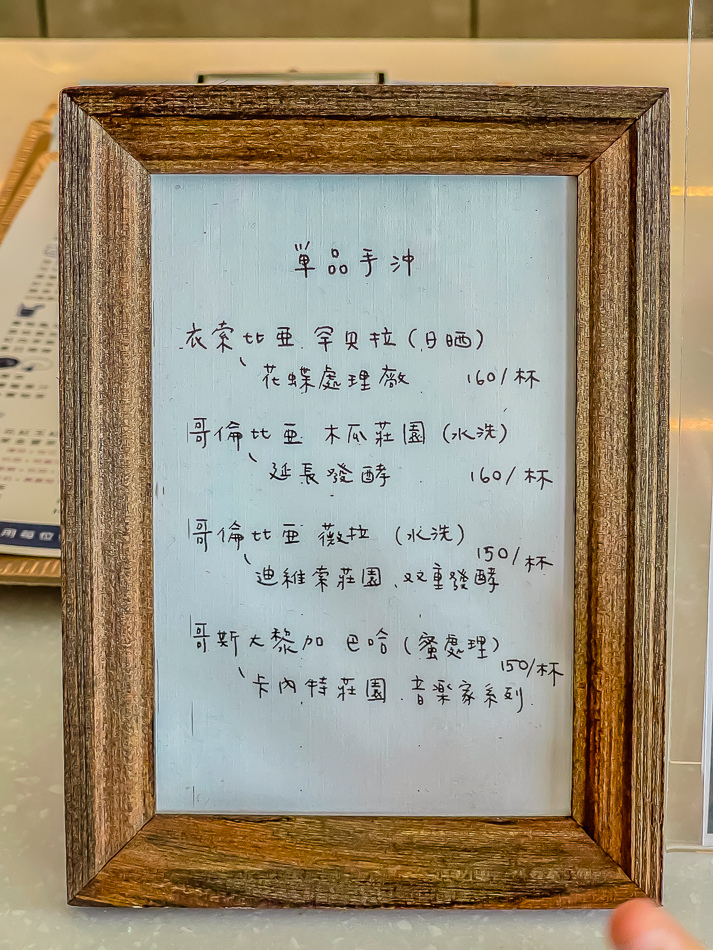 単品手沖
衣索比亜 罕貝拉(日晒)
花蝶處理廠 160/杯
哥倫比亜 木瓜莊園(水洗)
延長發酵 160/杯
哥倫比亜 薇拉 (水洗)
迪維索莊園、双重發酵 150/杯
哥斯大黎加 巴哈(蜜處理)
卡內特莊園 音楽家系列 150/杯
用每位